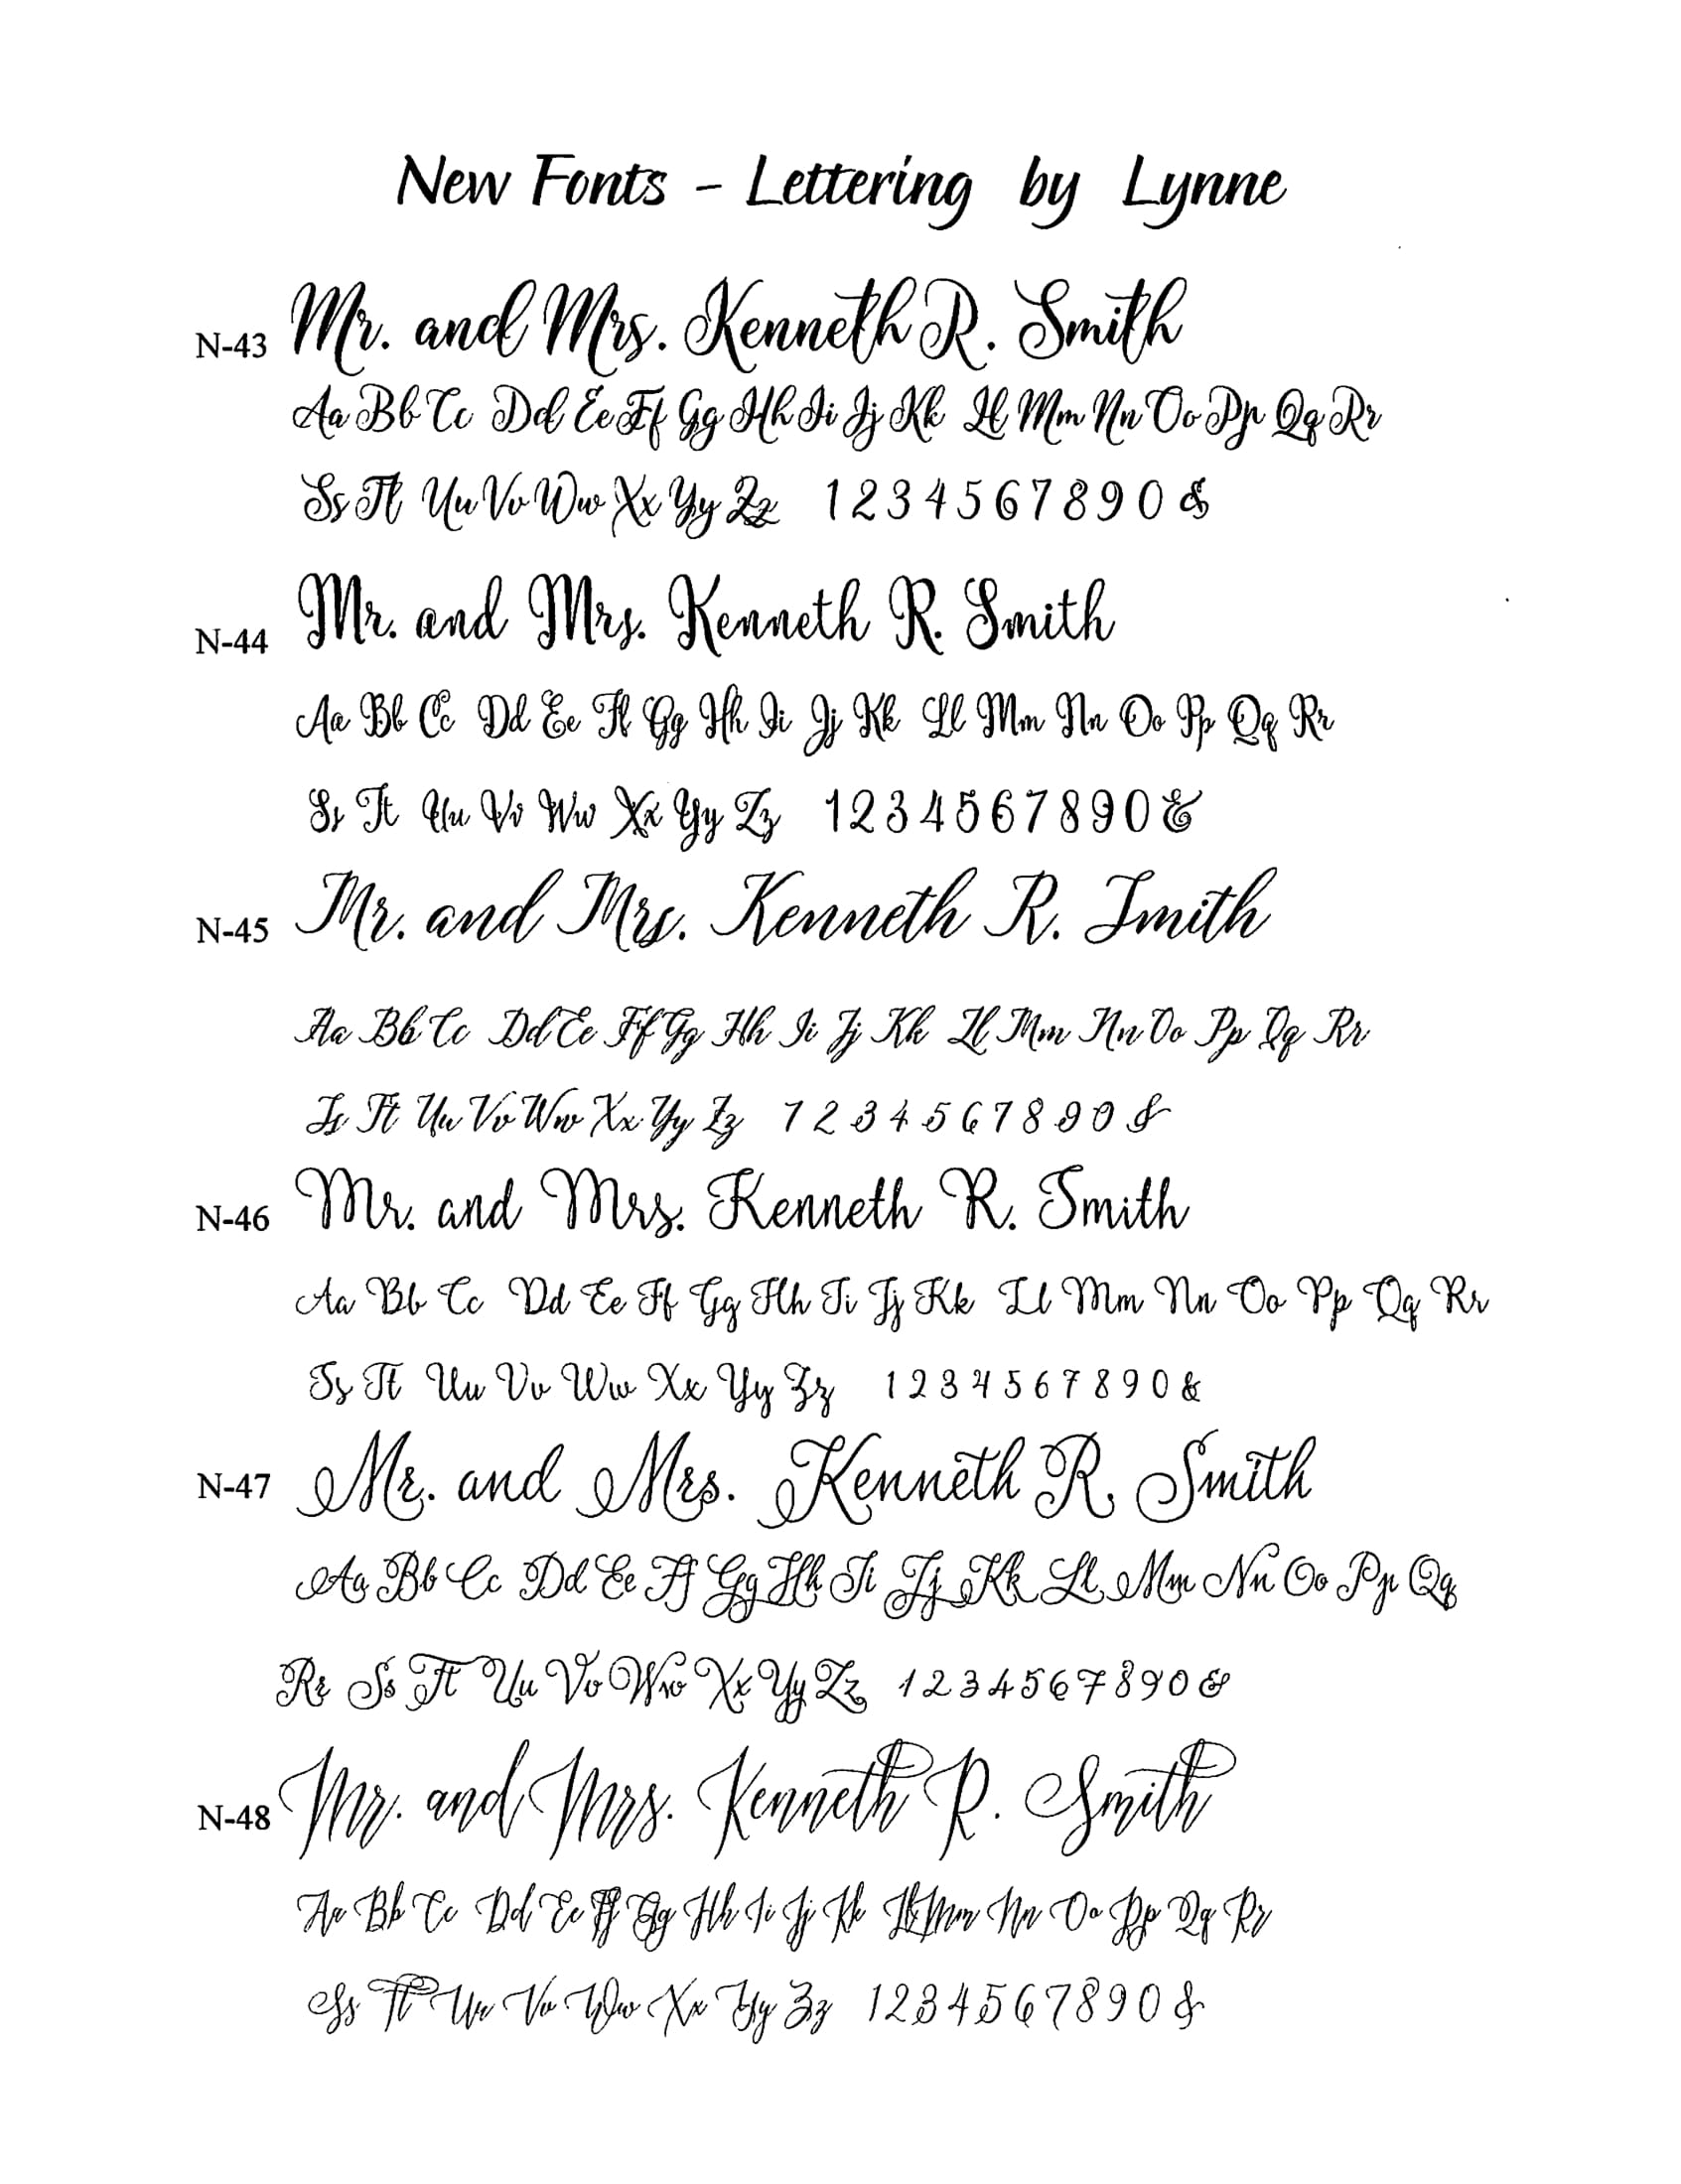 New Fonts - Lettering by Lynne
N-43 Mr. and Mrs. Kenneth R. Smith
Aa Bb Cc Dd Ee Ff Gg Hh Ii Jj Kk Ll Mm Nn Oo Pp Qq Rr
Ss Tt Uu Vv Ww Xx Yy Zz 1 2 3 4 5 6 7 8 9 0 &
N-44 Mr. and Mrs. Kenneth R. Smith
Aa Bb Cc Dd Ee Ff Gg Hh Ii Jj Kk Ll Mm Nn Oo Pp Qq Rr
Ss Tt Uu Vv Ww Xx Yy Zz 1 2 3 4 5 6 7 8 9 0 &
N-45 Mr. and Mrs. Kenneth R. Smith
Aa Bb Cc Dd Ee Ff Gg Hh Ii Jj Kk Ll Mm Nn Oo Pp Qq Rr
Ss Tt Uu Vv Ww Xx Yy Zz 1 2 3 4 5 6 7 8 9 0 &
N-46 Mr. and Mrs. Kenneth R. Smith
Aa Bb Cc Dd Ee Ff Gg Hh Ii Jj Kk Ll Mm Nn Oo Pp Qq Rr
Ss Tt Uu Vv Ww Xx Yy Zz 1 2 3 4 5 6 7 8 9 0 &
N-47 Mr. and Mrs. Kenneth R. Smith
Aa Bb Cc Dd Ee Ff Gg Hh Ii Jj Kk Ll Mm Nn Oo Pp Qq
Rr Ss Tt Uu Vv Ww Xx Yy Zz 1 2 3 4 5 6 7 8 9 0 &
N-48 Mr. and Mrs. Kenneth R. Smith
Aa Bb Cc Dd Ee Ff Gg Hh Ii Jj Kk Ll Mm Nn Oo Pp Qq Rr
Ss Tt Uu Vv Ww Xx Yy Zz 1 2 3 4 5 6 7 8 9 0 &